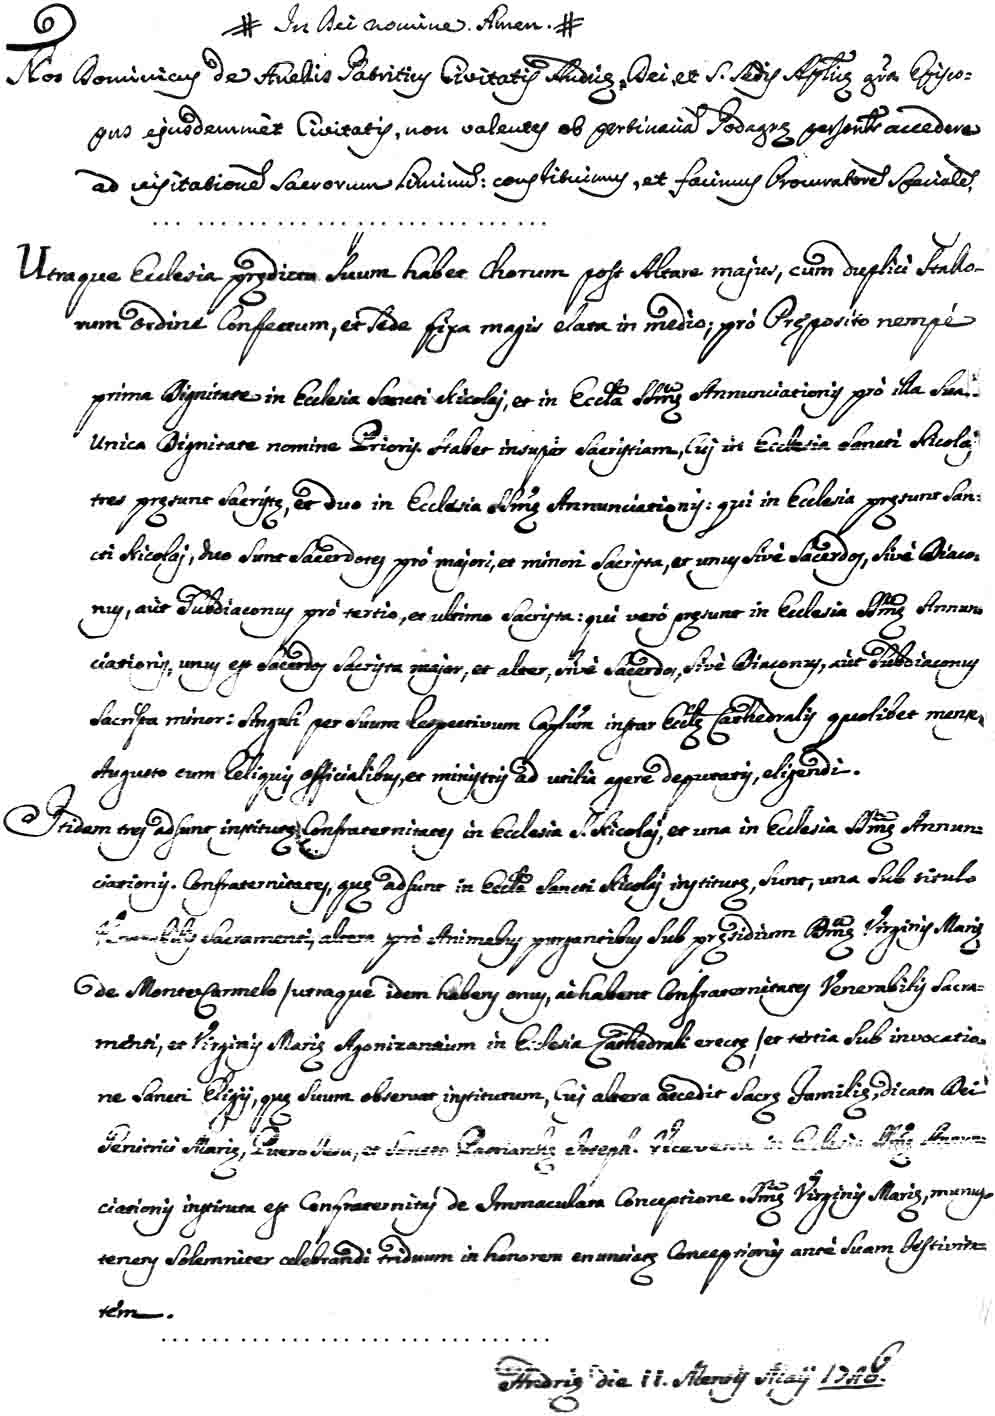 # In Dei nomine. Amen. #
Nos Dominicus de Anellis Patritius Civitatis Andrię, Dei, et S. Sedis Aplicę gra Episco-
pus ejusdemmèt Civitatis, non valentes ob pertinaciā Podagrę personlr accedere
ad visitationē Sacrorum Liminū: constituimus, et facimus Procuratorē Specialē,
... ... ... ... ... ... ... ... ... ... ...
Utraque Ecclesia prędicta suum habet Chorum post Altare majus, cum duplici Stallo-
rum ordine Confectum, et Sede fixa magis elata in medio; prò Pręposito nempè
prima Dignitate in Ecclesia Sancti Nicolaj, et in Ecclā SSmę Annunciationis prò illa Sua
Unica Dignitate nomine Prioris. Habet insupèr Sacristiam, Cuj in Ecclesia Sancti Nicolaj
tres pręsunt Sacristę, et duo in Ecclesia SSmę Annunciationis: qui in Ecclesia pręsunt San-
cti Nicolaj, duo sunt Sacerdotes prò majori, et minori Sacrista, et unus sivè Sacerdos, sivè Diaco-
nus, aùt Subdiaconus prò tertio, et ultimo Sacrista: qui verò pręsunt in Ecclesia SSmę Annun
ciationis, unus est Sacerdos Sacrista major, et alter, sivè Sacerdos, sivè Diaconus, aùt Subdiaconus
Sacrista minor: Singuli per suum respectivum Caplūm instar Ecclę Cathedralis quolibet mense
Augusto cum reliquis officialibus, et ministris ad utilia agere deputatis, eligendi.
Itidem tres adsunt institutę Confraternitates in Ecclesia S. Nicolaj, et una in Ecclesia SSmę Annun-
ciationis. Confraternitates, quę adsunt in Ecclā Sancti Nicolaj institutę, sunt, una sub titulo
Venerabilis Sacramenti, altera prò Animabus purgantibus sub pręsidium Bmę Virginis Marię
de Monte Carmelo /utraquę idem habens onus, ac habent Confraternitates Venerabilis Sacra-
menti, et Virginis Marię Agonizantium in Ecclesia Cathedrali erectę / et tertia sub invocatio-
ne Sancti Eligij, quę suum observat institutum, Cuj altera accedit Sacrę Familię, dicata Dei
Genitrici Marię, Puero Jesu, et Sancto Patriarchę Joseph. Viceversa in Ecclesia SSmę Annun-
ciationis instituta est Confraternitas de Immaculata Conceptione SSmę Virginis Marię, munus
tenens solemniter celebrandi triduum in honorem enunciatę Conceptionis antè suam festivita-
tem.
... ... ... ... ... ... ... ... ... ... ...
Andrię die 11. Mensis Maij